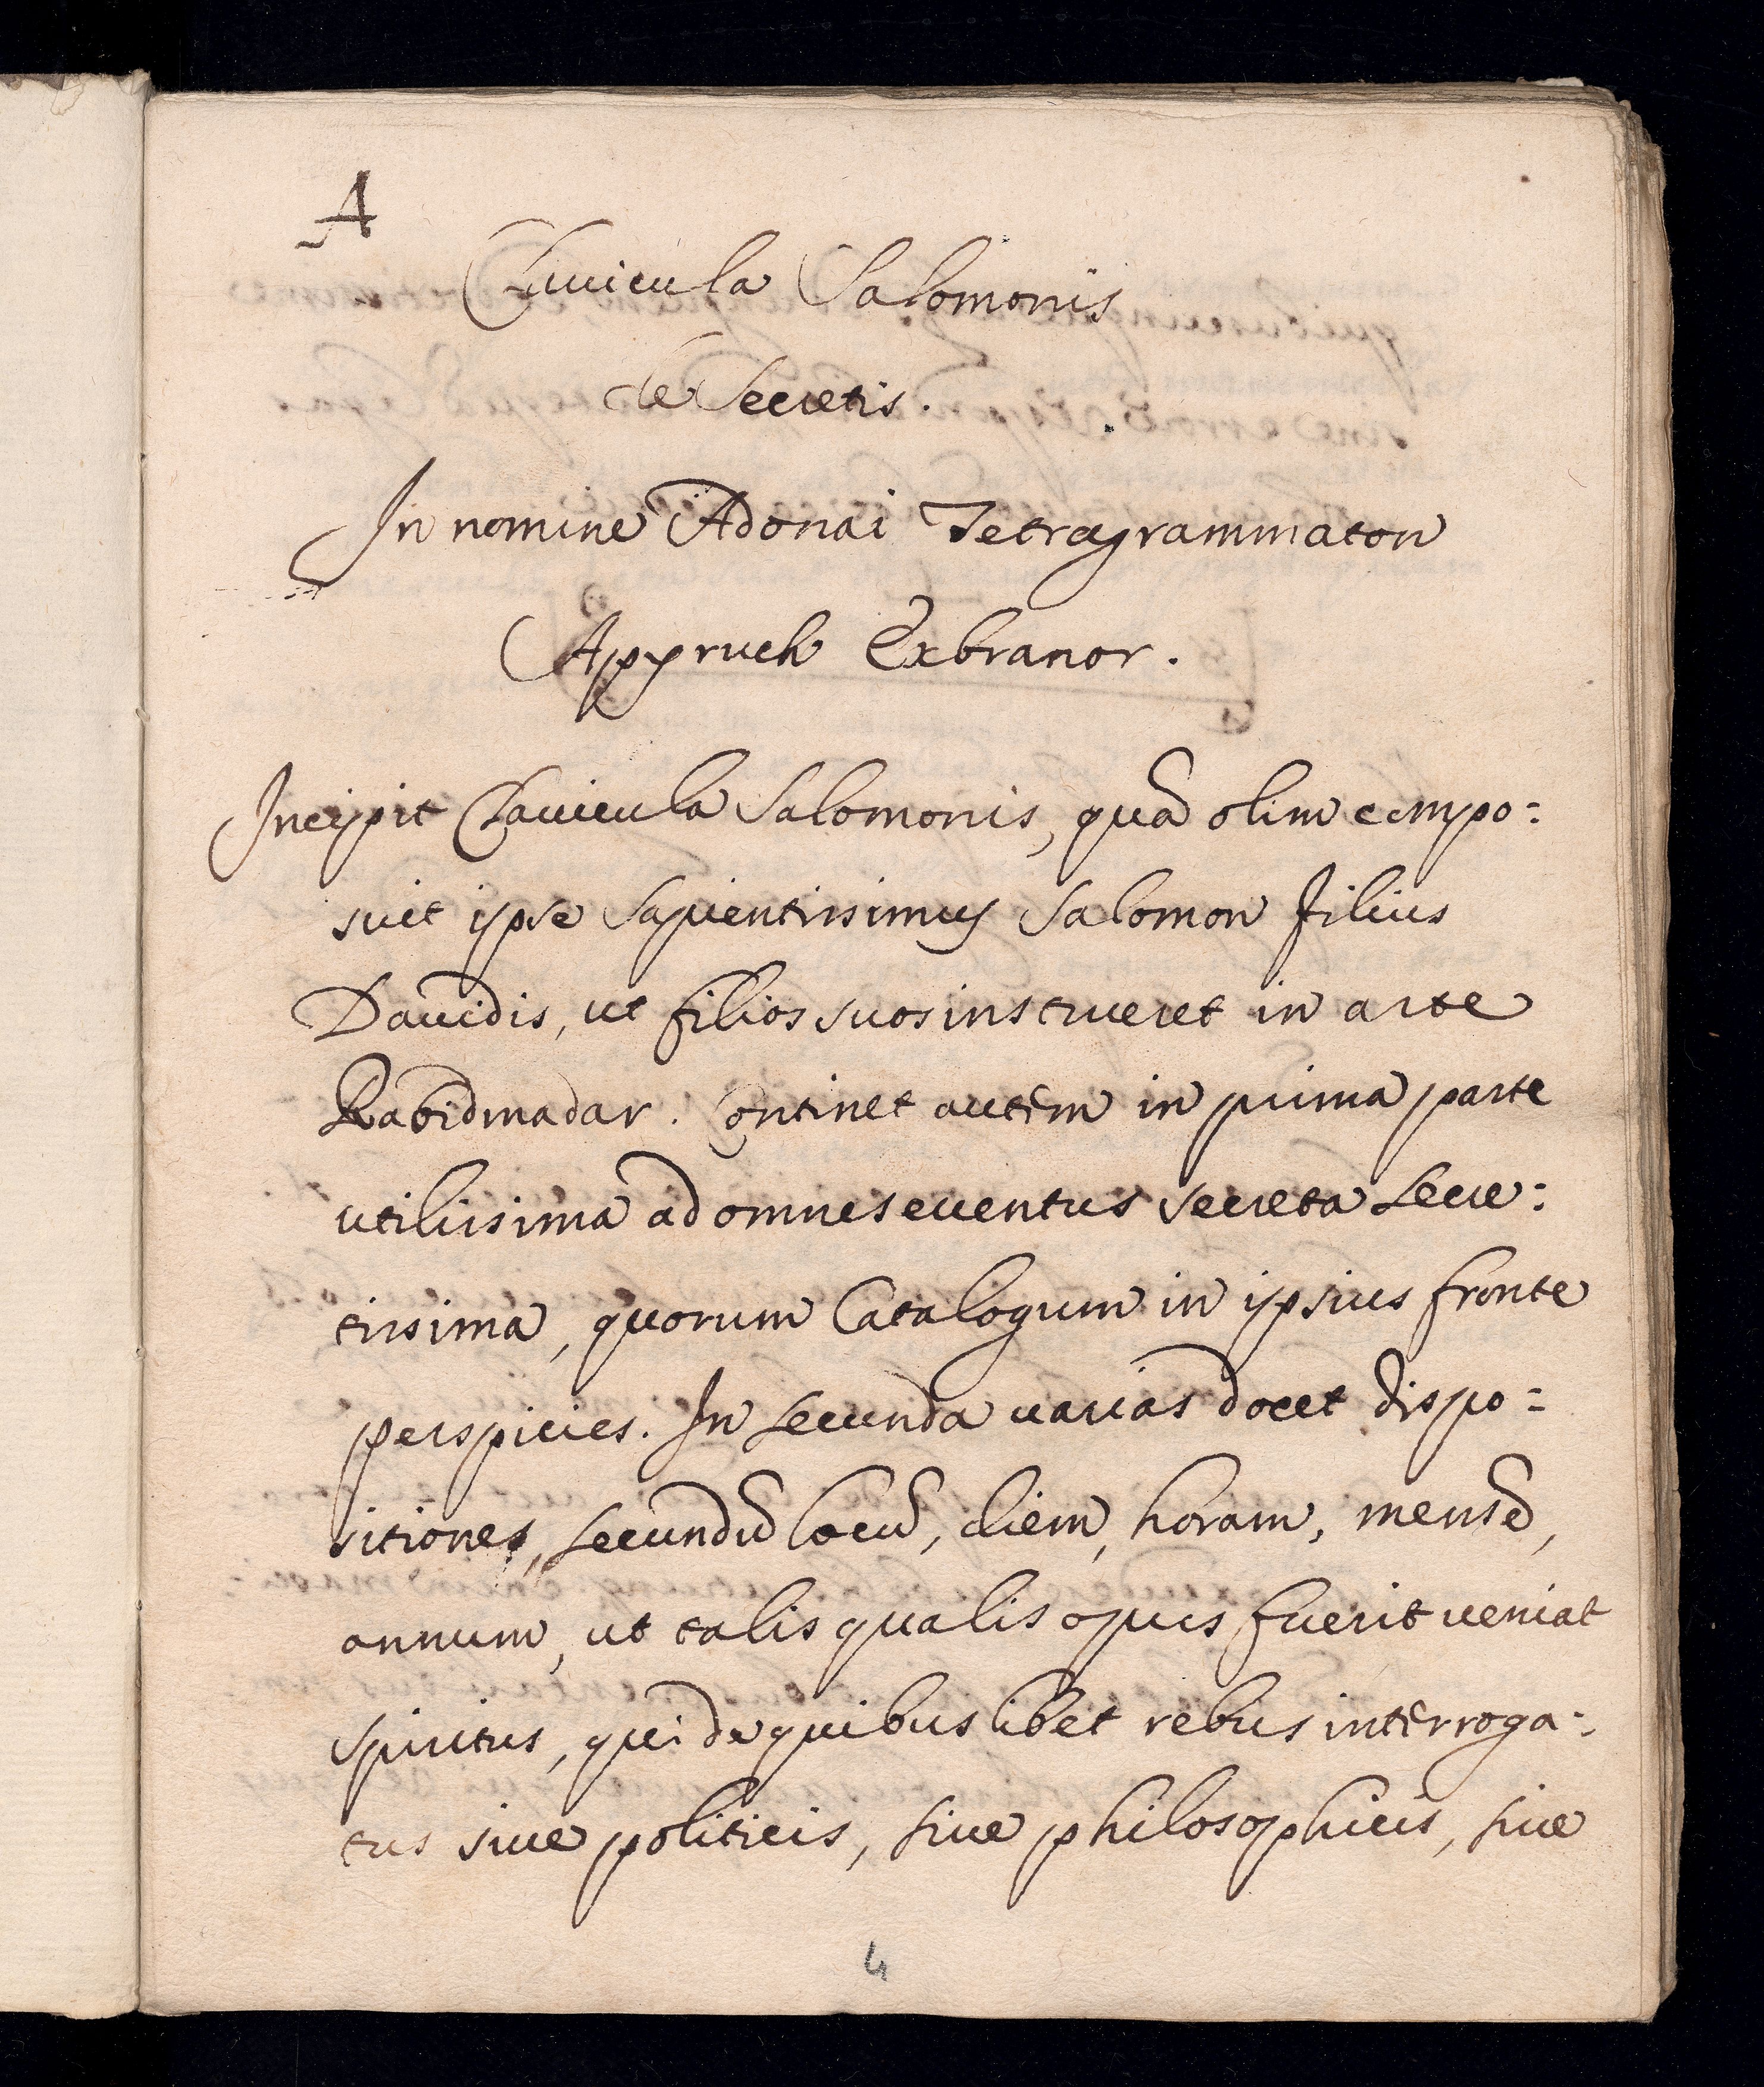 A
Clauicula Salomonis
de Secretis.
In nomine Adonai Tetragrammaton
Appruch Exbranor.
Incipit Clauicula Salomonis, quā olim compo:
suit ipse Sapientissimus Salomon filius
Dauidis, ut filios suos instrueret in arte
Rabidmadar. Continet autem in prima parte
utilissima ad omnes euentus secreta secre:
tissima, quorum Catalogum in ipsius fronte
perspicies. In secunda uarias docet dispo:
sitiones, secundū locū, diem, horam, mensē,
annum, ut talis qualis opus fuerit ueniat
spiritus, qui de quibuslibet rebus interroga:
tus siue politicis, siue philosophicis, siue
4